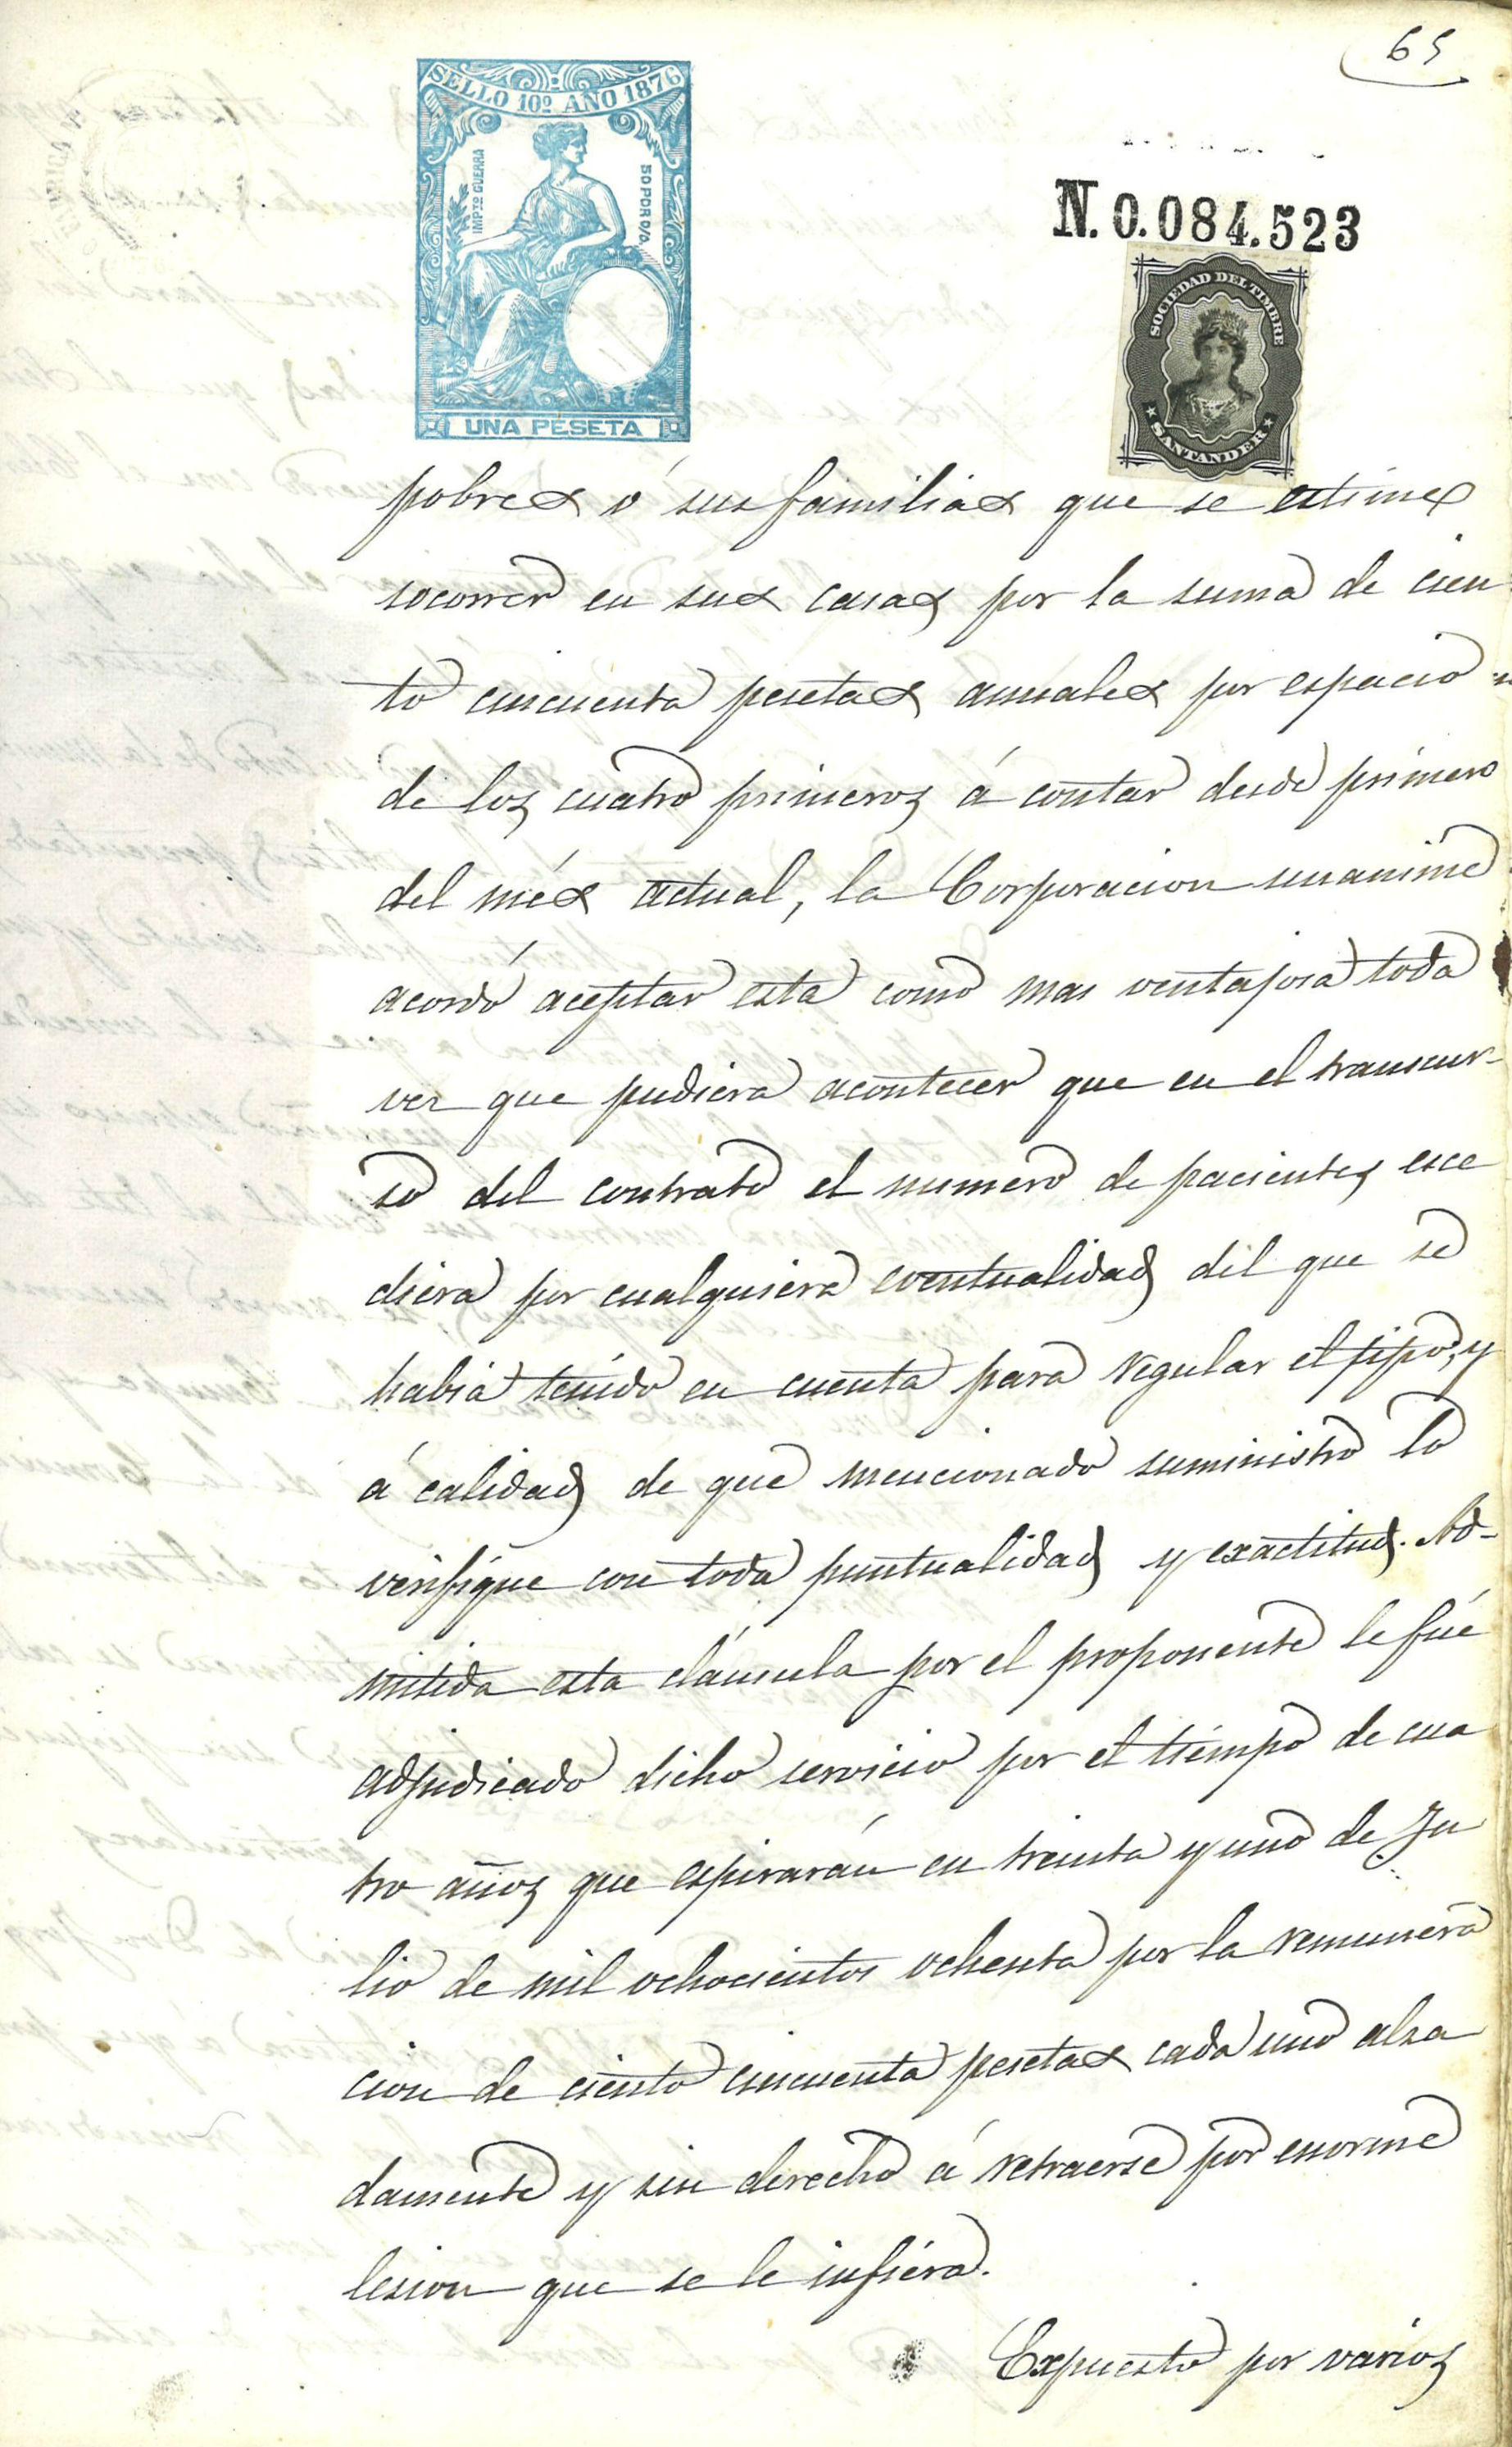 65
SELLO 10º AÑO 1876
IMPTO GUERRA
50 POR 0/0.
UNA PESETA
N. 0.084.523
SOCIEDAD DEL TIMBRE
SANTANDER
pobres ó sus familias que se estimex
socorrer en sus casas por la suma de cien
to cincuenta pesetas anuales por espacio
de los cuatro primeros á contar desde primero
del més actual, la Corporacion unanime
acordó aceptar esta como mas ventajosa toda
vez que pudiera acontecer que en el transcur-
so del contrato el numero de pacientes esce
diera por cualquiera eventualidad dil que se
habia tenido en cuenta para regular el tipo, y
á calidad de que mencionado suministro lo
verifique con toda puntualidad y exactitud. Ad-
mitida esta cláusula por el proponente le fué
adjudicado dicho servicio por el tiempo de cua
tro años que espirarán en treinta y uno de Ju
lio de mil ochocientos ochenta por la remunera
cion de ciento cincuenta pesetas cada uno alza
damente y sin derecho á retraerse por enorme
lesion que se le infiera.
Expuesto por varios